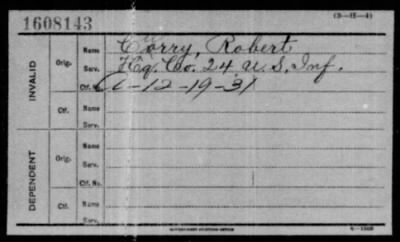 (3-II-4)
1608143
INVALID
Orig.
Name Corry, Robert
Serv. Hq. Co. 24 U.S. Inf.
Ctf. No. A-12-19-31
Ctf.
Name
Serv.
DEPENDENT
Orig.
Name
Serv.
Ctf. No.
Ctf.
Name
Serv.